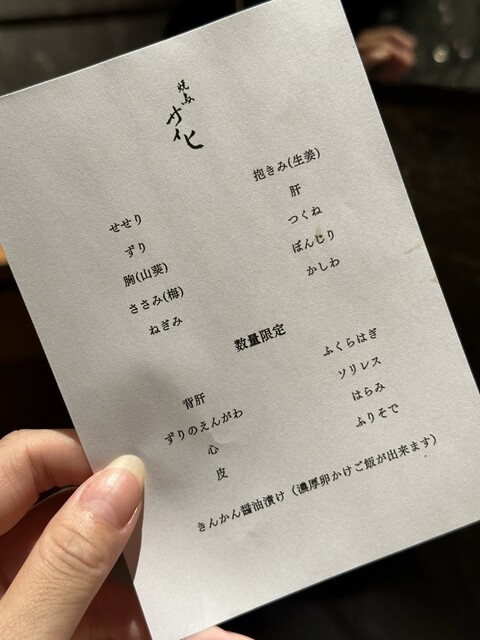 焼鳥
サイヒ
せせり
ずり
胸(山葵)
ささみ(梅)
ねぎみ
抱きみ(生姜)
肝
つくね
ぼんじり
かしわ
数量限定
背肝
ずりのえんがわ
心
皮
ふくらはぎ
ソリレス
はらみ
ふりそで
きんかん醤油漬け（濃厚卵かけご飯が出来ます）